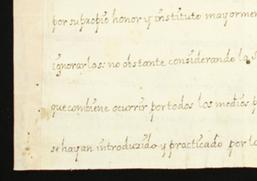 por su propio honor y instituto mayormen
ignorarlos: no obstante considerando la s
que combiene ocurrir por todos los medios p
se hayan introduzido y practicado por lo